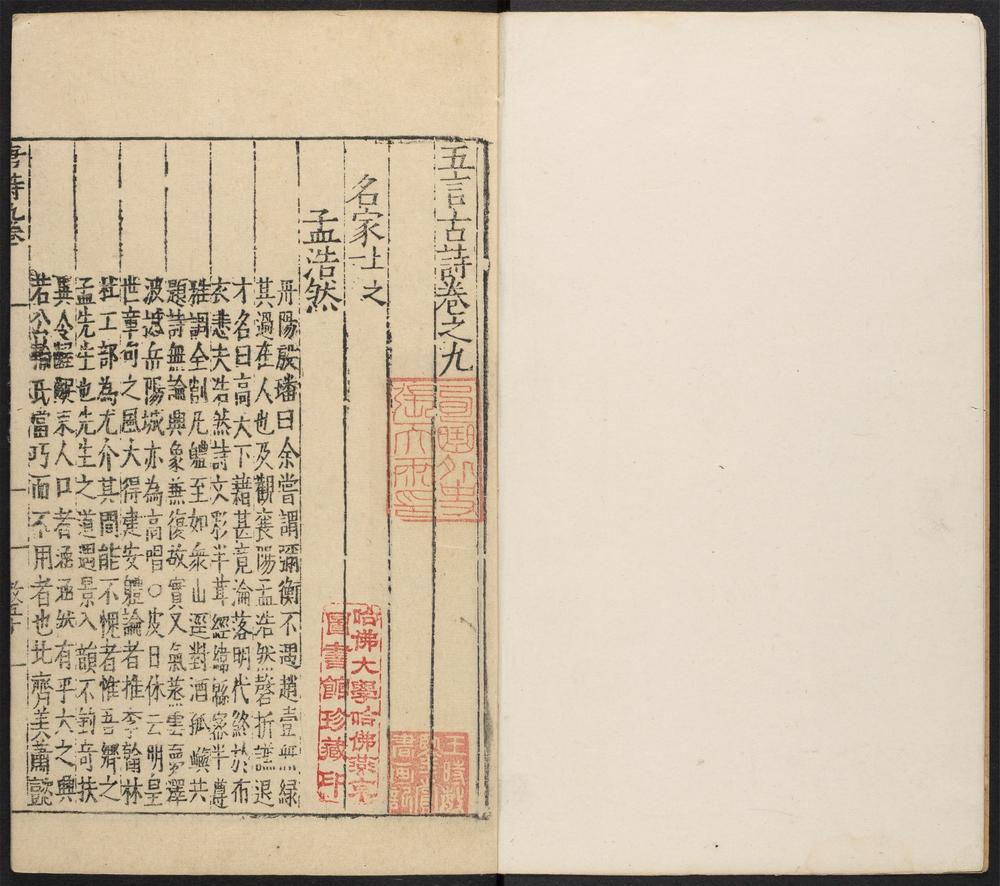 五言古詩卷之九
名家上之
孟浩然
丹陽殷璠曰余嘗謂禰衡不遇趙壹無祿
其過在人也及觀襄陽孟浩然罄折謙退
才名日高天下藉甚竟淪落明代終於布
衣悲夫浩然詩文彩丰葺經緯綿密半遵
雅調全削凡體至如衆山遥對酒孤嶼共
題詩無論興象兼復故實又氣蒸雲夢澤
波撼岳陽城亦為高唱○皮日休云明皇
世章句之風大得建安體論者推李翰林
杜工部為尤介其間能不愧者惟吾鄉之
孟先生也先生之道遇景入韻不鈎奇抉
異令齷齪束人口者涵涵然有平大之興
若公輸氏當巧而不用者也北齊美蕭慤
唐詩九卷
哈佛大學哈佛燕京
圖書館珍藏印